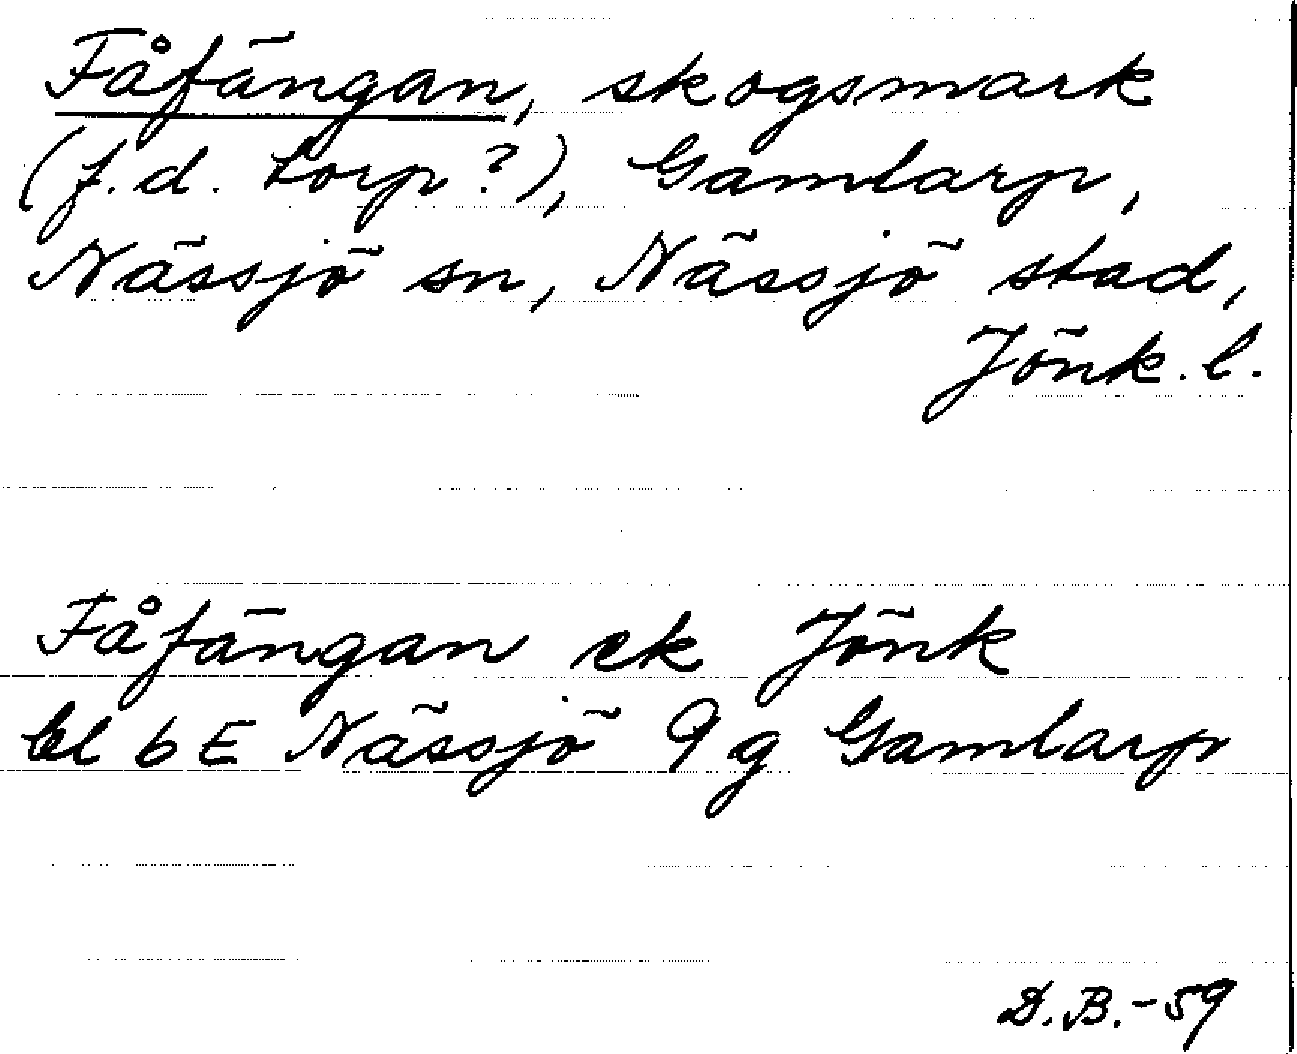 Fåfängan, skogsmark
(f.d. torp?), Gamlarp,
Nässjö sn, Nässjö stad,
Jönk. l.
Fåfängan ek Jönk
bl 6E Nässjö 9g Gamlarp
D.B.-59